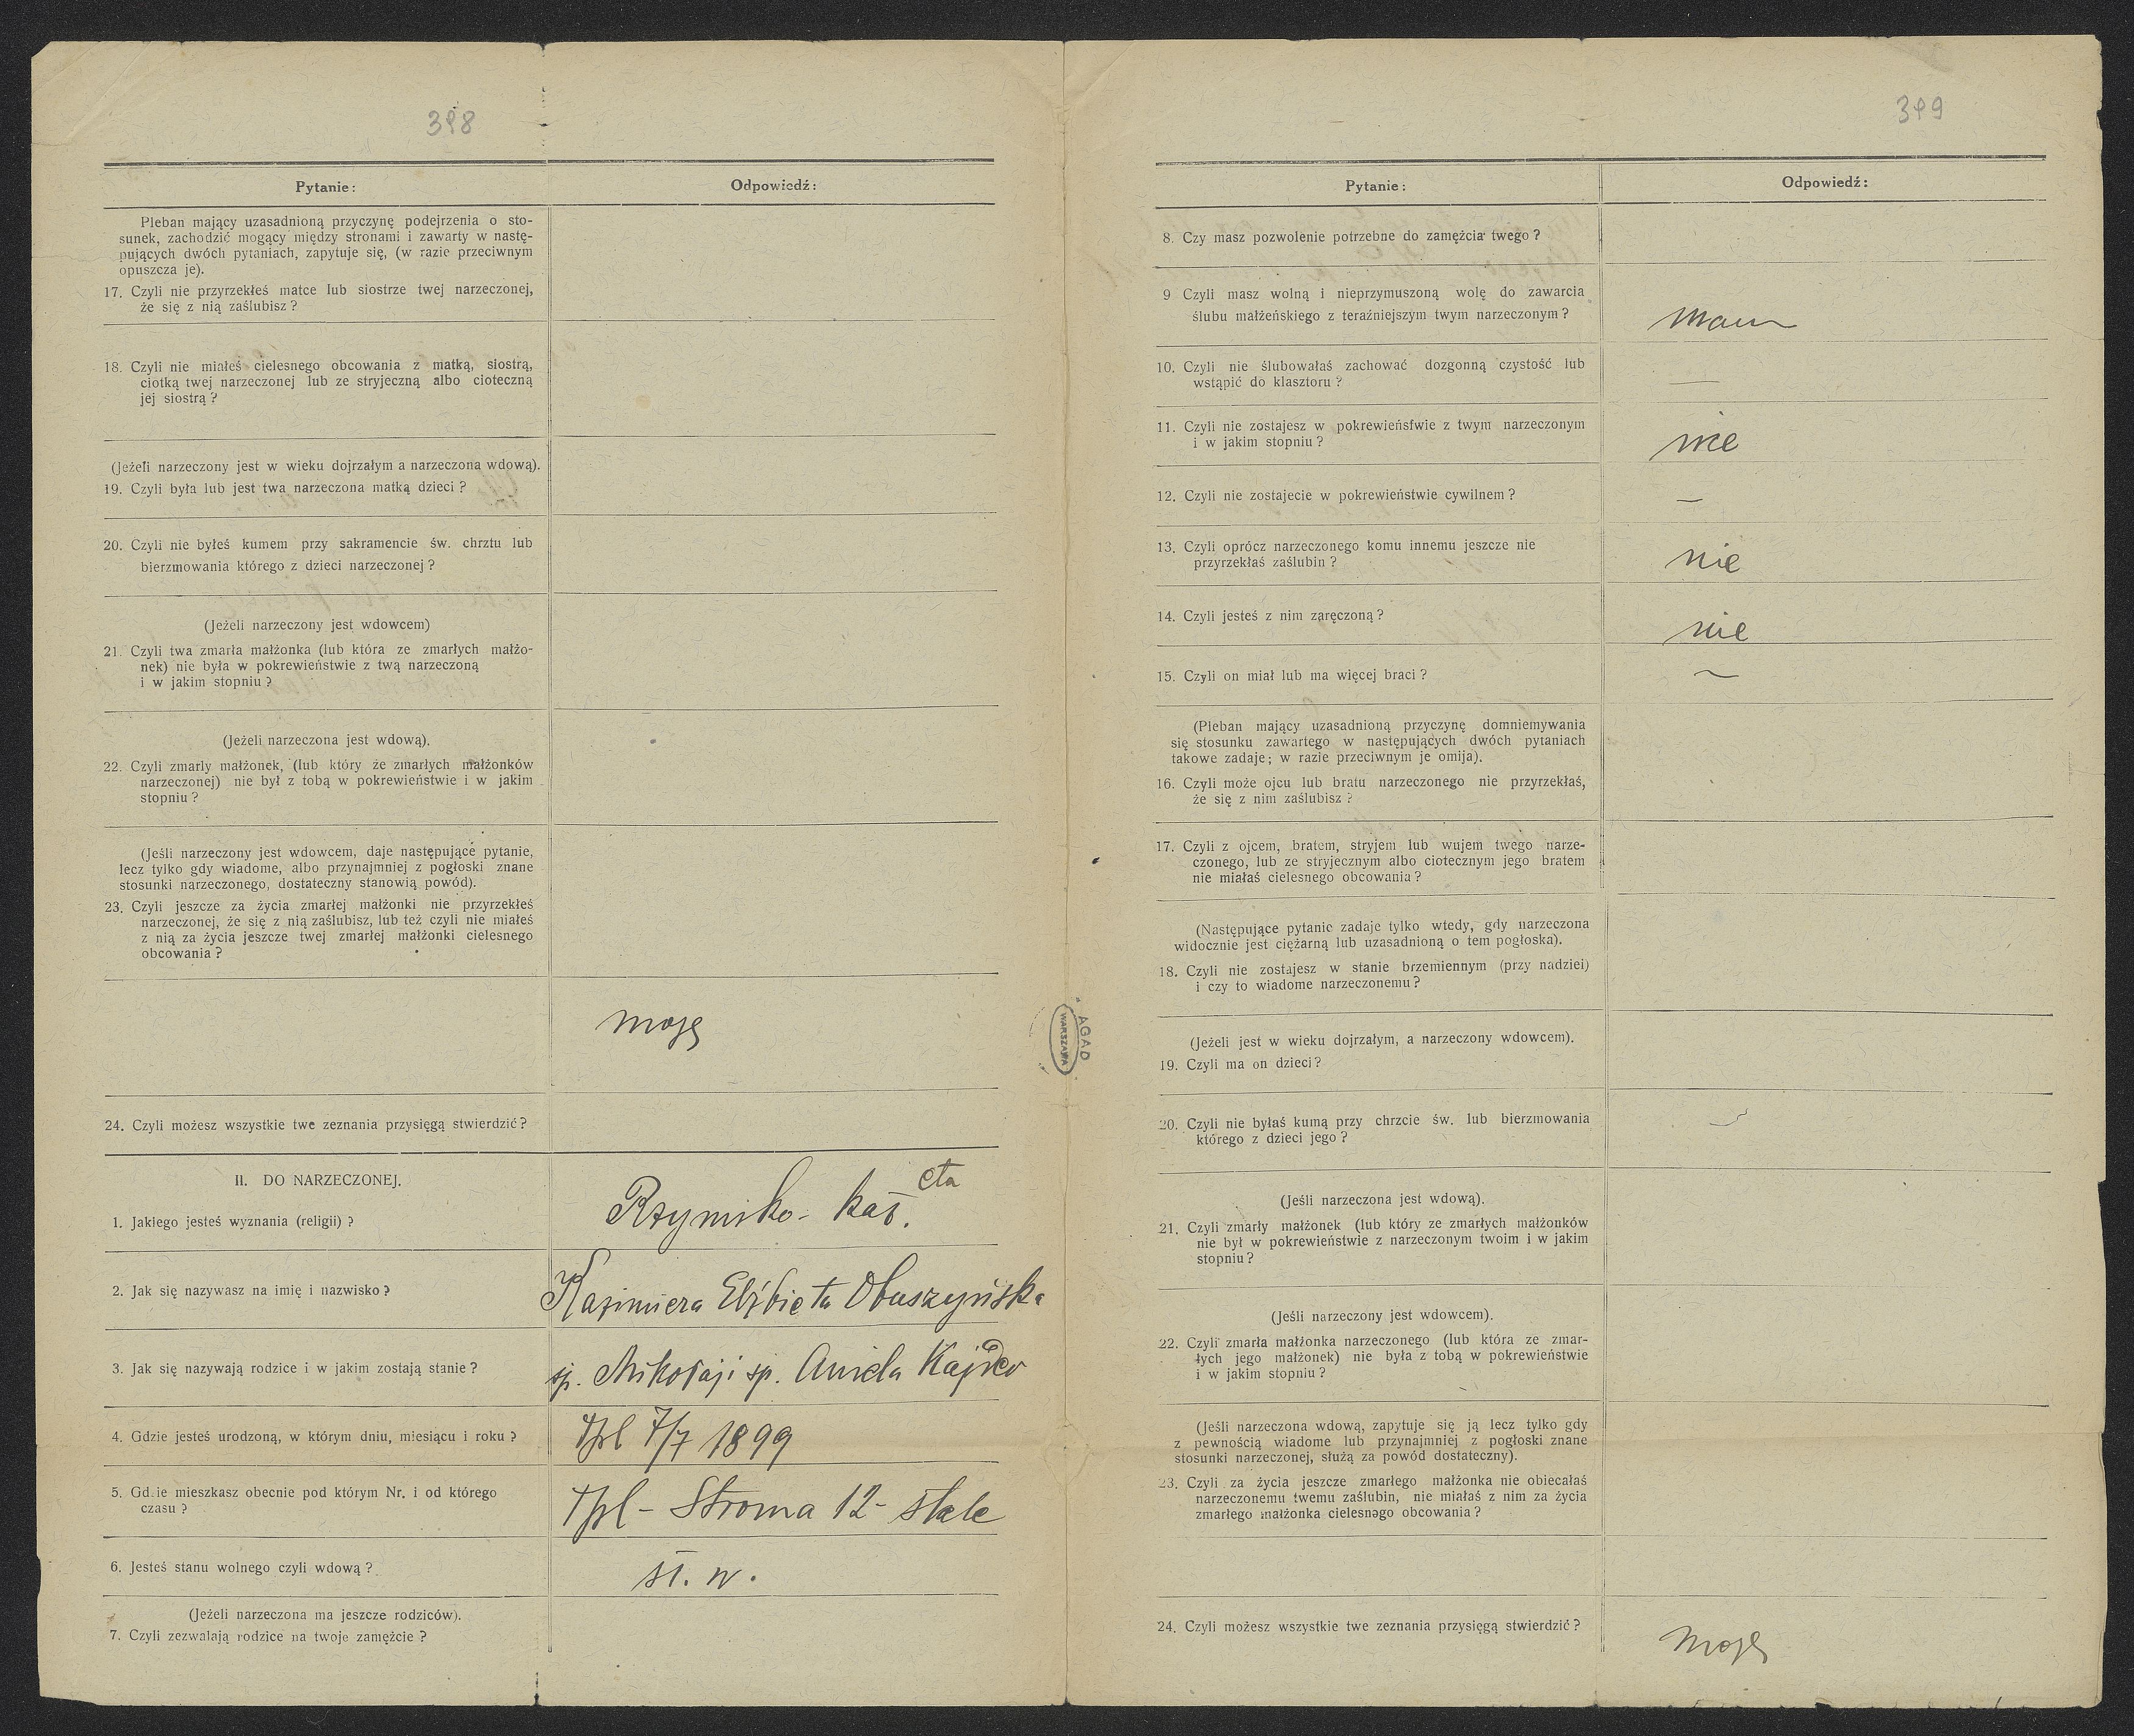 398
Pytanie:
Odpowiedź:
Pleban mający uzasadnioną przyczynę podejrzenia o sto-
sunek, zachodzić mogący między stronami i zawarty w nastę-
pujących dwóch pytaniach, zapytuje się, (w razie przeciwnym
opuszcza je).
17. Czyli nie przyrzekłeś matce lub siostrze twej narzeczonej,
że się z nią zaślubisz?
18. Czyli nie miałeś cielesnego obcowania z matką, siostrą,
ciotką twej narzeczonej lub ze stryjeczną albo cioteczną
jej siostrą?
(Jeżeli narzeczony jest w wieku dojrzałym a narzeczona wdową).
19. Czyli była lub jest twa narzeczona matką dzieci?
20. Czyli nie byłeś kumem przy sakramencie św. chrztu lub
bierzmowania którego z dzieci narzeczonej?
(Jeżeli narzeczony jest wdowcem)
21. Czyli twa zmarła małżonka (lub która ze zmarłych małżo-
nek) nie była w pokrewieństwie z twą narzeczoną
i w jakim stopniu?
(Jeżeli narzeczona jest wdową).
22. Czyli zmarly małżonek, (lub który że zmarłych małżonków
narzeczonej) nie był z tobą w pokrewieństwie i w jakim
stopniu?
(Jeśli narzeczony jest wdowcem, daje następujące pytanie,
lecz tylko gdy wiadome, albo przynajmniej z pogłoski znane
stosunki narzeczonego, dostateczny stanowią powód).
23. Czyli jeszcze za życia zmarłej małżonki nie przyrzekłeś
narzeczonej, że się z nią zaślubisz, lub też czyli nie miałeś
z nią za życia jeszcze twej zmarłej małżonki cielesnego
obcowania?
mogę
24. Czyli możesz wszystkie twe zeznania przysięgą stwierdzić?
II. DO NARZECZONEJ.
1. Jakiego jesteś wyznania (religii)?
Rzymsko-kat. cta
2. Jak się nazywasz na imię i nazwisko?
Kazimiera Elżbieta Obuszyńska
3. Jak się nazywają rodzice i w jakim zostają stanie?
śp. Mikołaj i śp. Aniela
4. Gdzie jesteś urodzoną, w którym dniu, miesiącu i roku?
Tpl 7/7 1899
5. Gdzie mieszkasz obecnie pod którym Nr. i od którego
czasu?
Tpl - Stroma 12 - stale
6. Jesteś stanu wolnego czyli wdową?
st. w.
(Jeżeli narzeczona ma jeszcze rodziców).
7. Czyli zezwalają rodzice na twoje zamęźcie?
AGAD
WARSZAWA
399
Pytanie:
Odpowiedź:
8. Czy masz pozwolenie potrzebne do zamęźcia twego?
9 Czyli masz wolną i nieprzymuszoną wolę do zawarcia
ślubu małżeńskiego z teraźniejszym twym narzeczonym?
mam
10. Czyli nie ślubowałaś zachować dozgonną czystość lub
wstąpić do klasztoru?
—
11. Czyli nie zostajesz w pokrewieńsfwie z twym narzeczonym
i w jakim stopniu?
nie
12. Czyli nie zostajecie w pokrewieństwie cywilnem?
—
13. Czyli oprócz narzeczonego komu innemu jeszcze nie
przyrzekłaś zaślubin?
nie
14. Czyli jesteś z nim zaręczoną?
nie
15. Czyli on miał lub ma więcej braci?
~
(Pleban mający uzasadnioną przyczynę domniemywania
się stosunku zawartego w następujących dwóch pytaniach
takowe zadaje; w razie przeciwnym je omija).
16. Czyli może ojcu lub bratu narzeczonego nie przyrzekłaś,
że się z nim zaślubisz?
17. Czyli z ojcem, bratem, stryjem lub wujem twego narze-
czonego, lub ze stryjecznym albo ciotecznym jego bratem
nie miałaś cielesnego obcowania?
(Następujące pytanie zadaje tylko wtedy, gdy narzeczona
widocznie jest ciężarną lub uzasadnioną o tem pogłoska).
18. Czyli nie zostajesz w stanie brzemiennym (przy nadziei)
i czy to wiadome narzeczonemu?
(Jeżeli jest w wieku dojrzałym, a narzeczony wdowcem).
19. Czyli ma on dzieci?
20. Czyli nie byłaś kumą przy chrzcie św. lub bierzmowania
którego z dzieci jego?
~
(Jeśli narzeczona jest wdową).
21. Czyli zmarły małżonek (lub który ze zmarłych małżonków
nie był w pokrewieństwie z narzeczonym twoim i w jakim
stopniu?
(Jeśli narzeczony jest wdowcem).
22. Czyli zmarła małżonka narzeczonego (lub która ze zmar-
łych jego małżonek) nie była z tobą w pokrewieństwie
i w jakim stopniu?
(Jeśli narzeczona wdową, zapytuje się ją lecz tylko gdy
z pewnością wiadome lub przynajmniej z pogłoski znane
stosunki narzeczonej, służą za powód dostateczny).
23. Czyli za życia jeszcze zmarłego małżonka nie obiecałaś
narzeczonemu twemu zaślubin, nie miałaś z nim za życia
zmarłego małżonka cielesnego obcowania?
24. Czyli możesz wszystkie twe zeznania przysięgą stwierdzić?
mogę